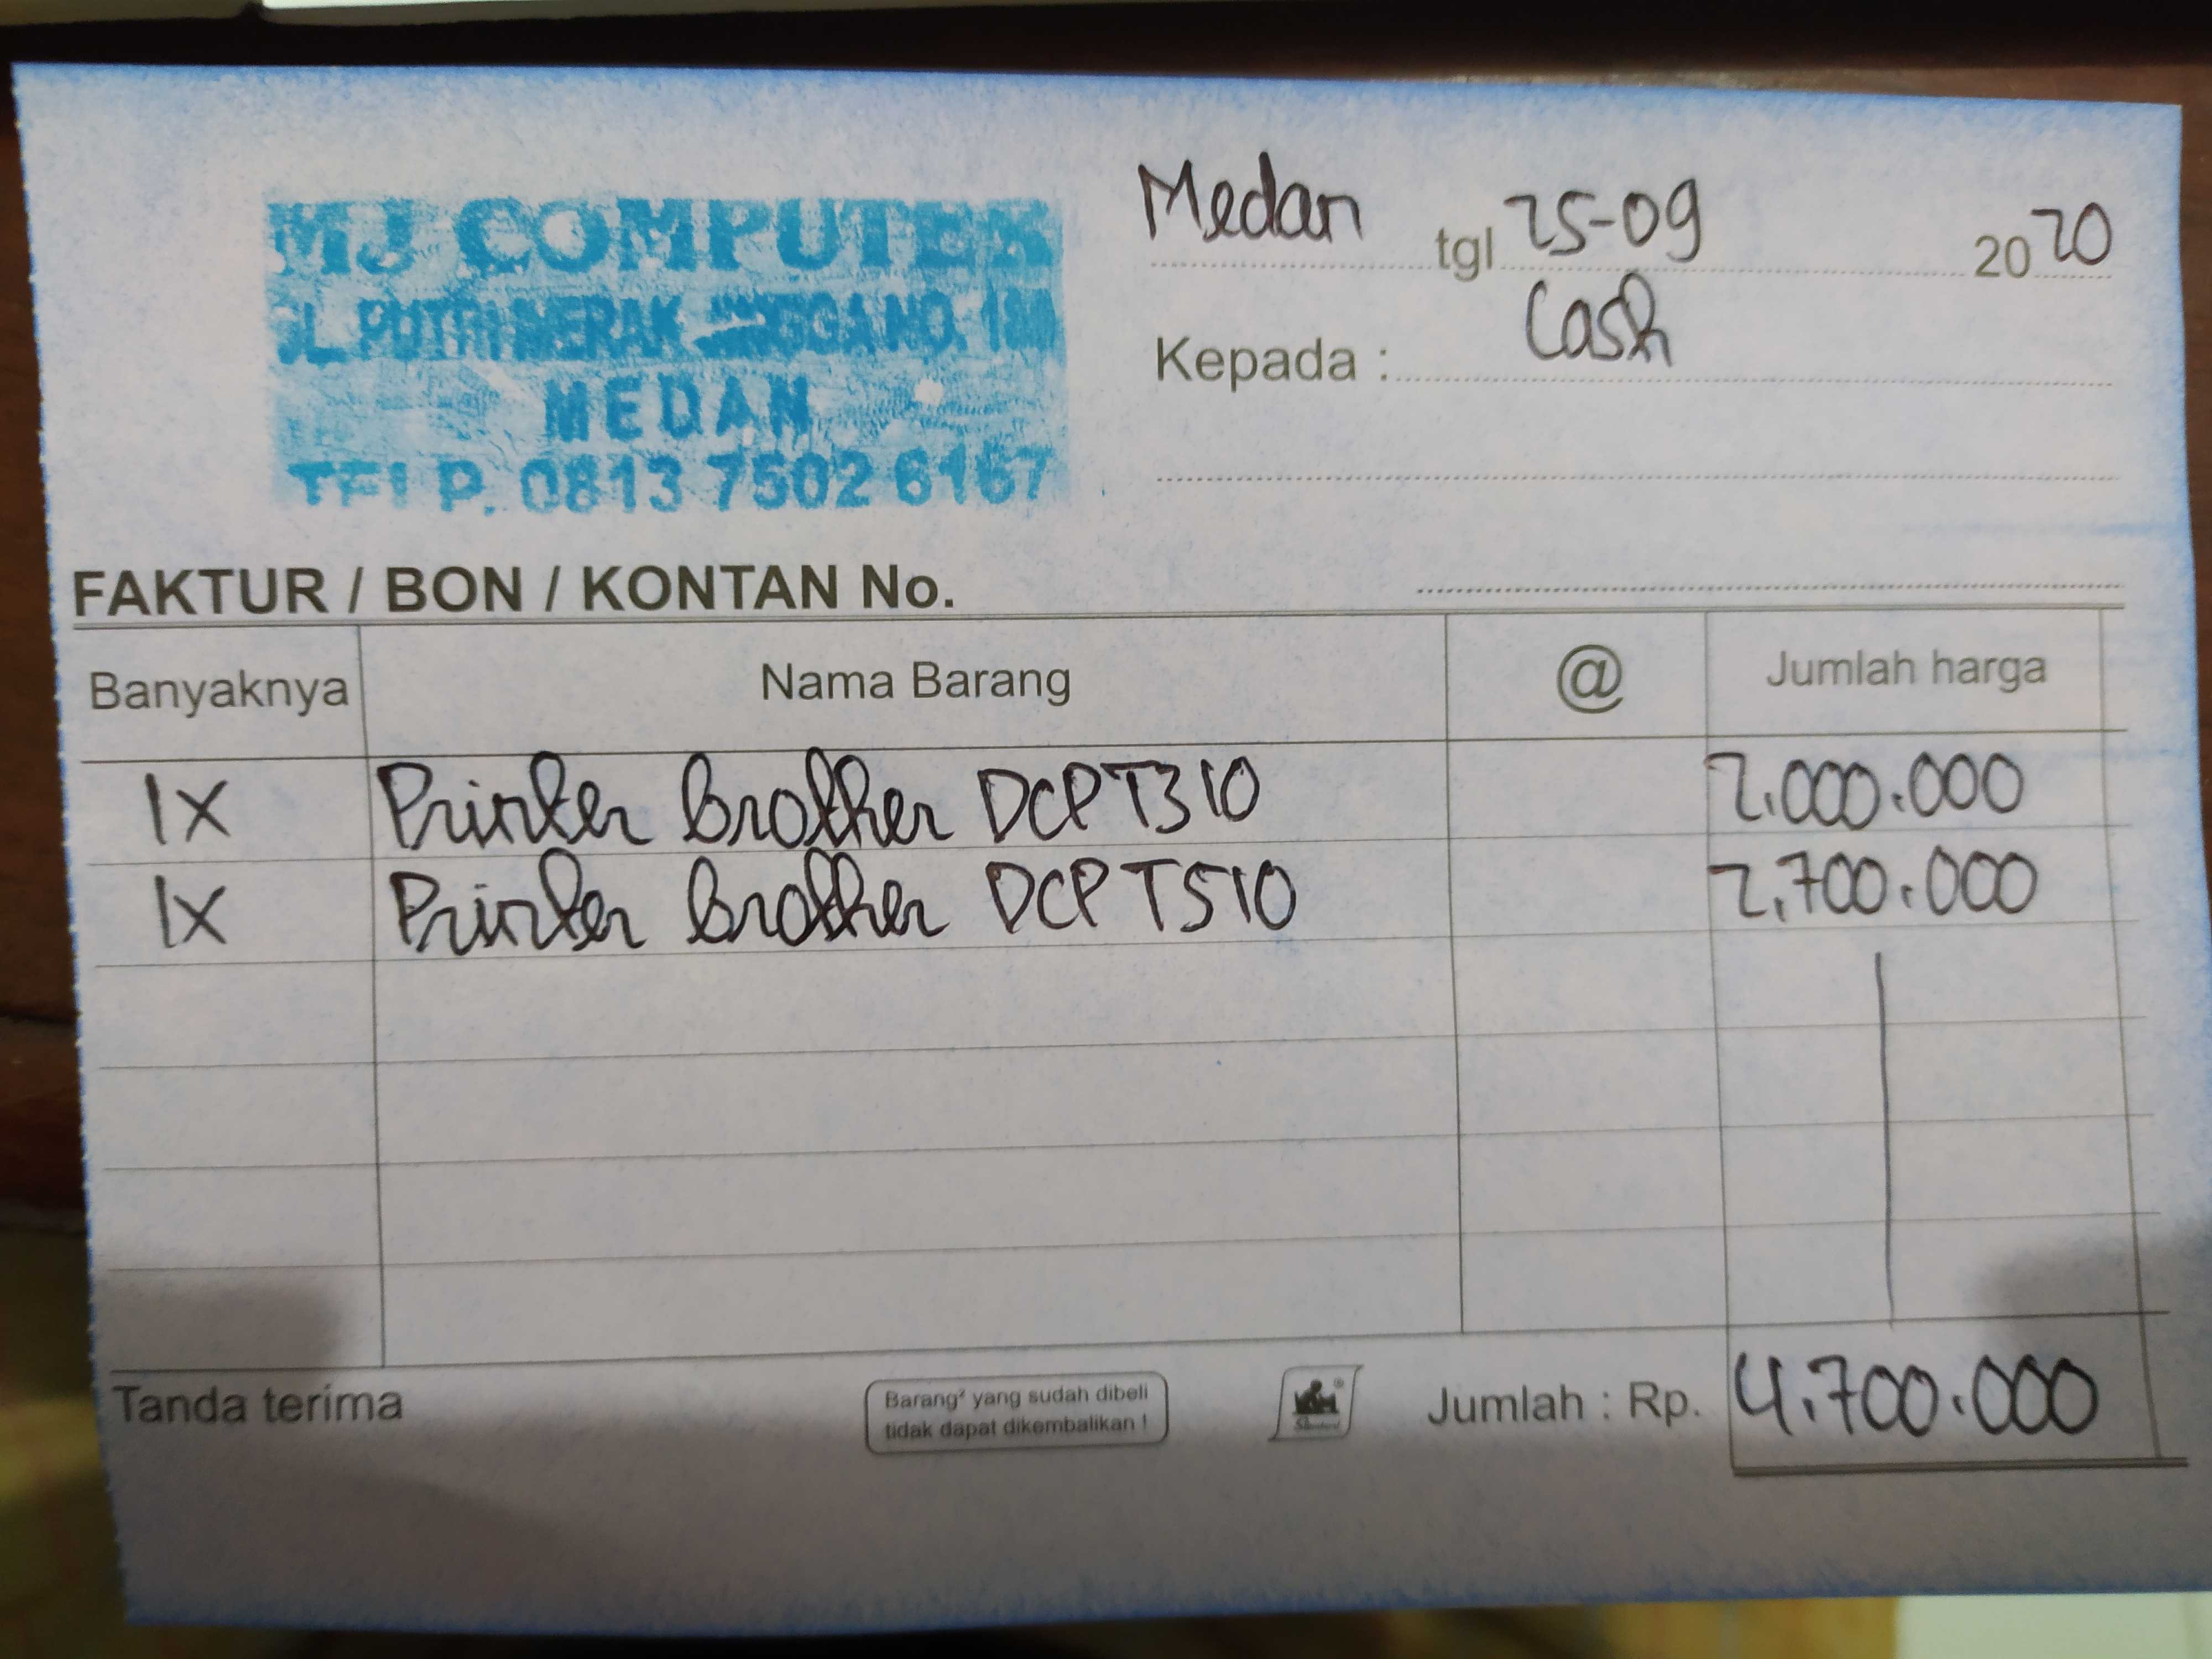 MJ COMPUTER
JL. PUTRI MERAK NO.
MEDAN
TELP. 0813 7502 6167
Medan tgl 25-09 2020
Kepada : Cash
FAKTUR / BON / KONTAN No.
Banyaknya Nama Barang @ Jumlah harga
1X Printer Brother DCP T310 2.000.000
1X Printer Brother DCP T510 2.700.000
Tanda terima
Barang² yang sudah dibeli
tidak dapat dikembalikan !
Jumlah : Rp. 4.700.000